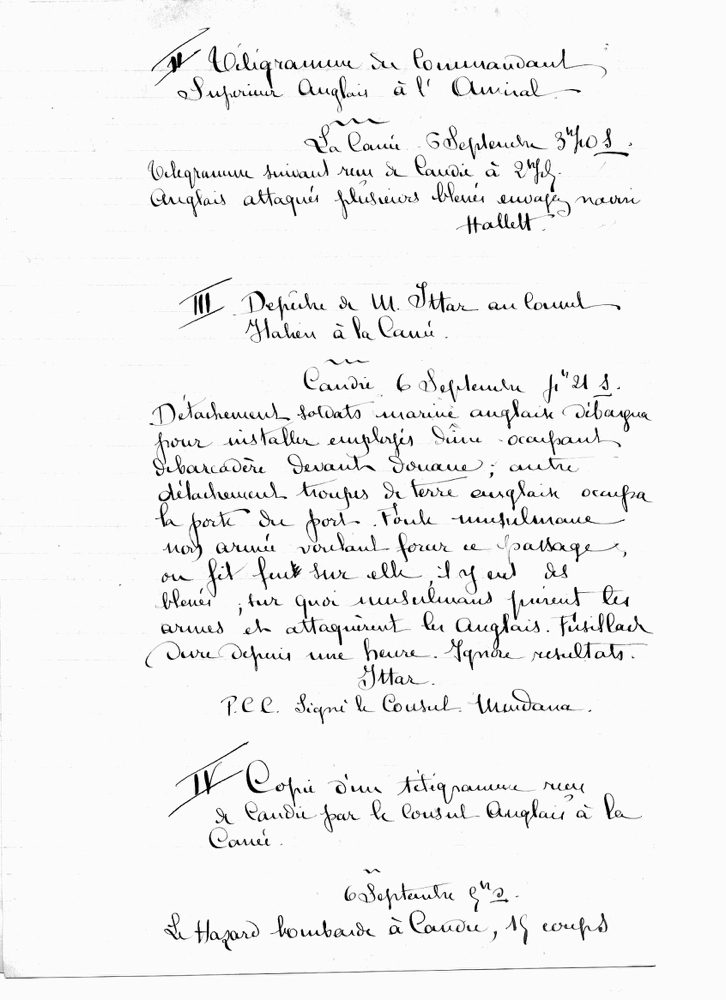 II Télégramme du Commandant
Superieur Anglais à l' Amiral
La Canée 6 Septembre 3h S.
Télegramme suivant reçu de Candie à
Anglais attaqués plusieurs blessés envoyez navire
Hallett.
III Depêche de M. Ittar au Consul
Italien à la Canée.
Candie 6 Septembre 21 S.
Détachement soldats marine anglaise débarqua
pour installer employés dîme occupant
debarcadère devant douane; autre
détachement troupes de terre anglaise occupa
la porte du port. Foule musulmane
non armée voulant forcer ce passage,
on fit feu sur elle, il y eut des
blessés; sur quoi musulmans prirent les
armes et attaquèrent les Anglais. Fusillade
dure depuis une heure. Ignore resultats.
Ittar.
P.C.C. Signé le Consul
IV Copie d'un télégramme reçu
de Candie par le Consul Anglais à la
Canée.
6 Septembre
Le Hazard bombarde à Candie, coups